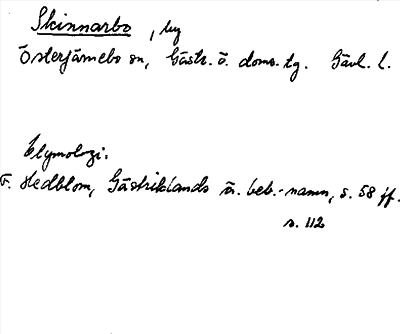 Skinnarbo, by
Österfärnebo sn, Gästr. ö. doms.tg. Gävl. l.
Etymologi:
F. Hedblom, Gästriklands ä. beb.-namn, s. 58 ff.
s. 112